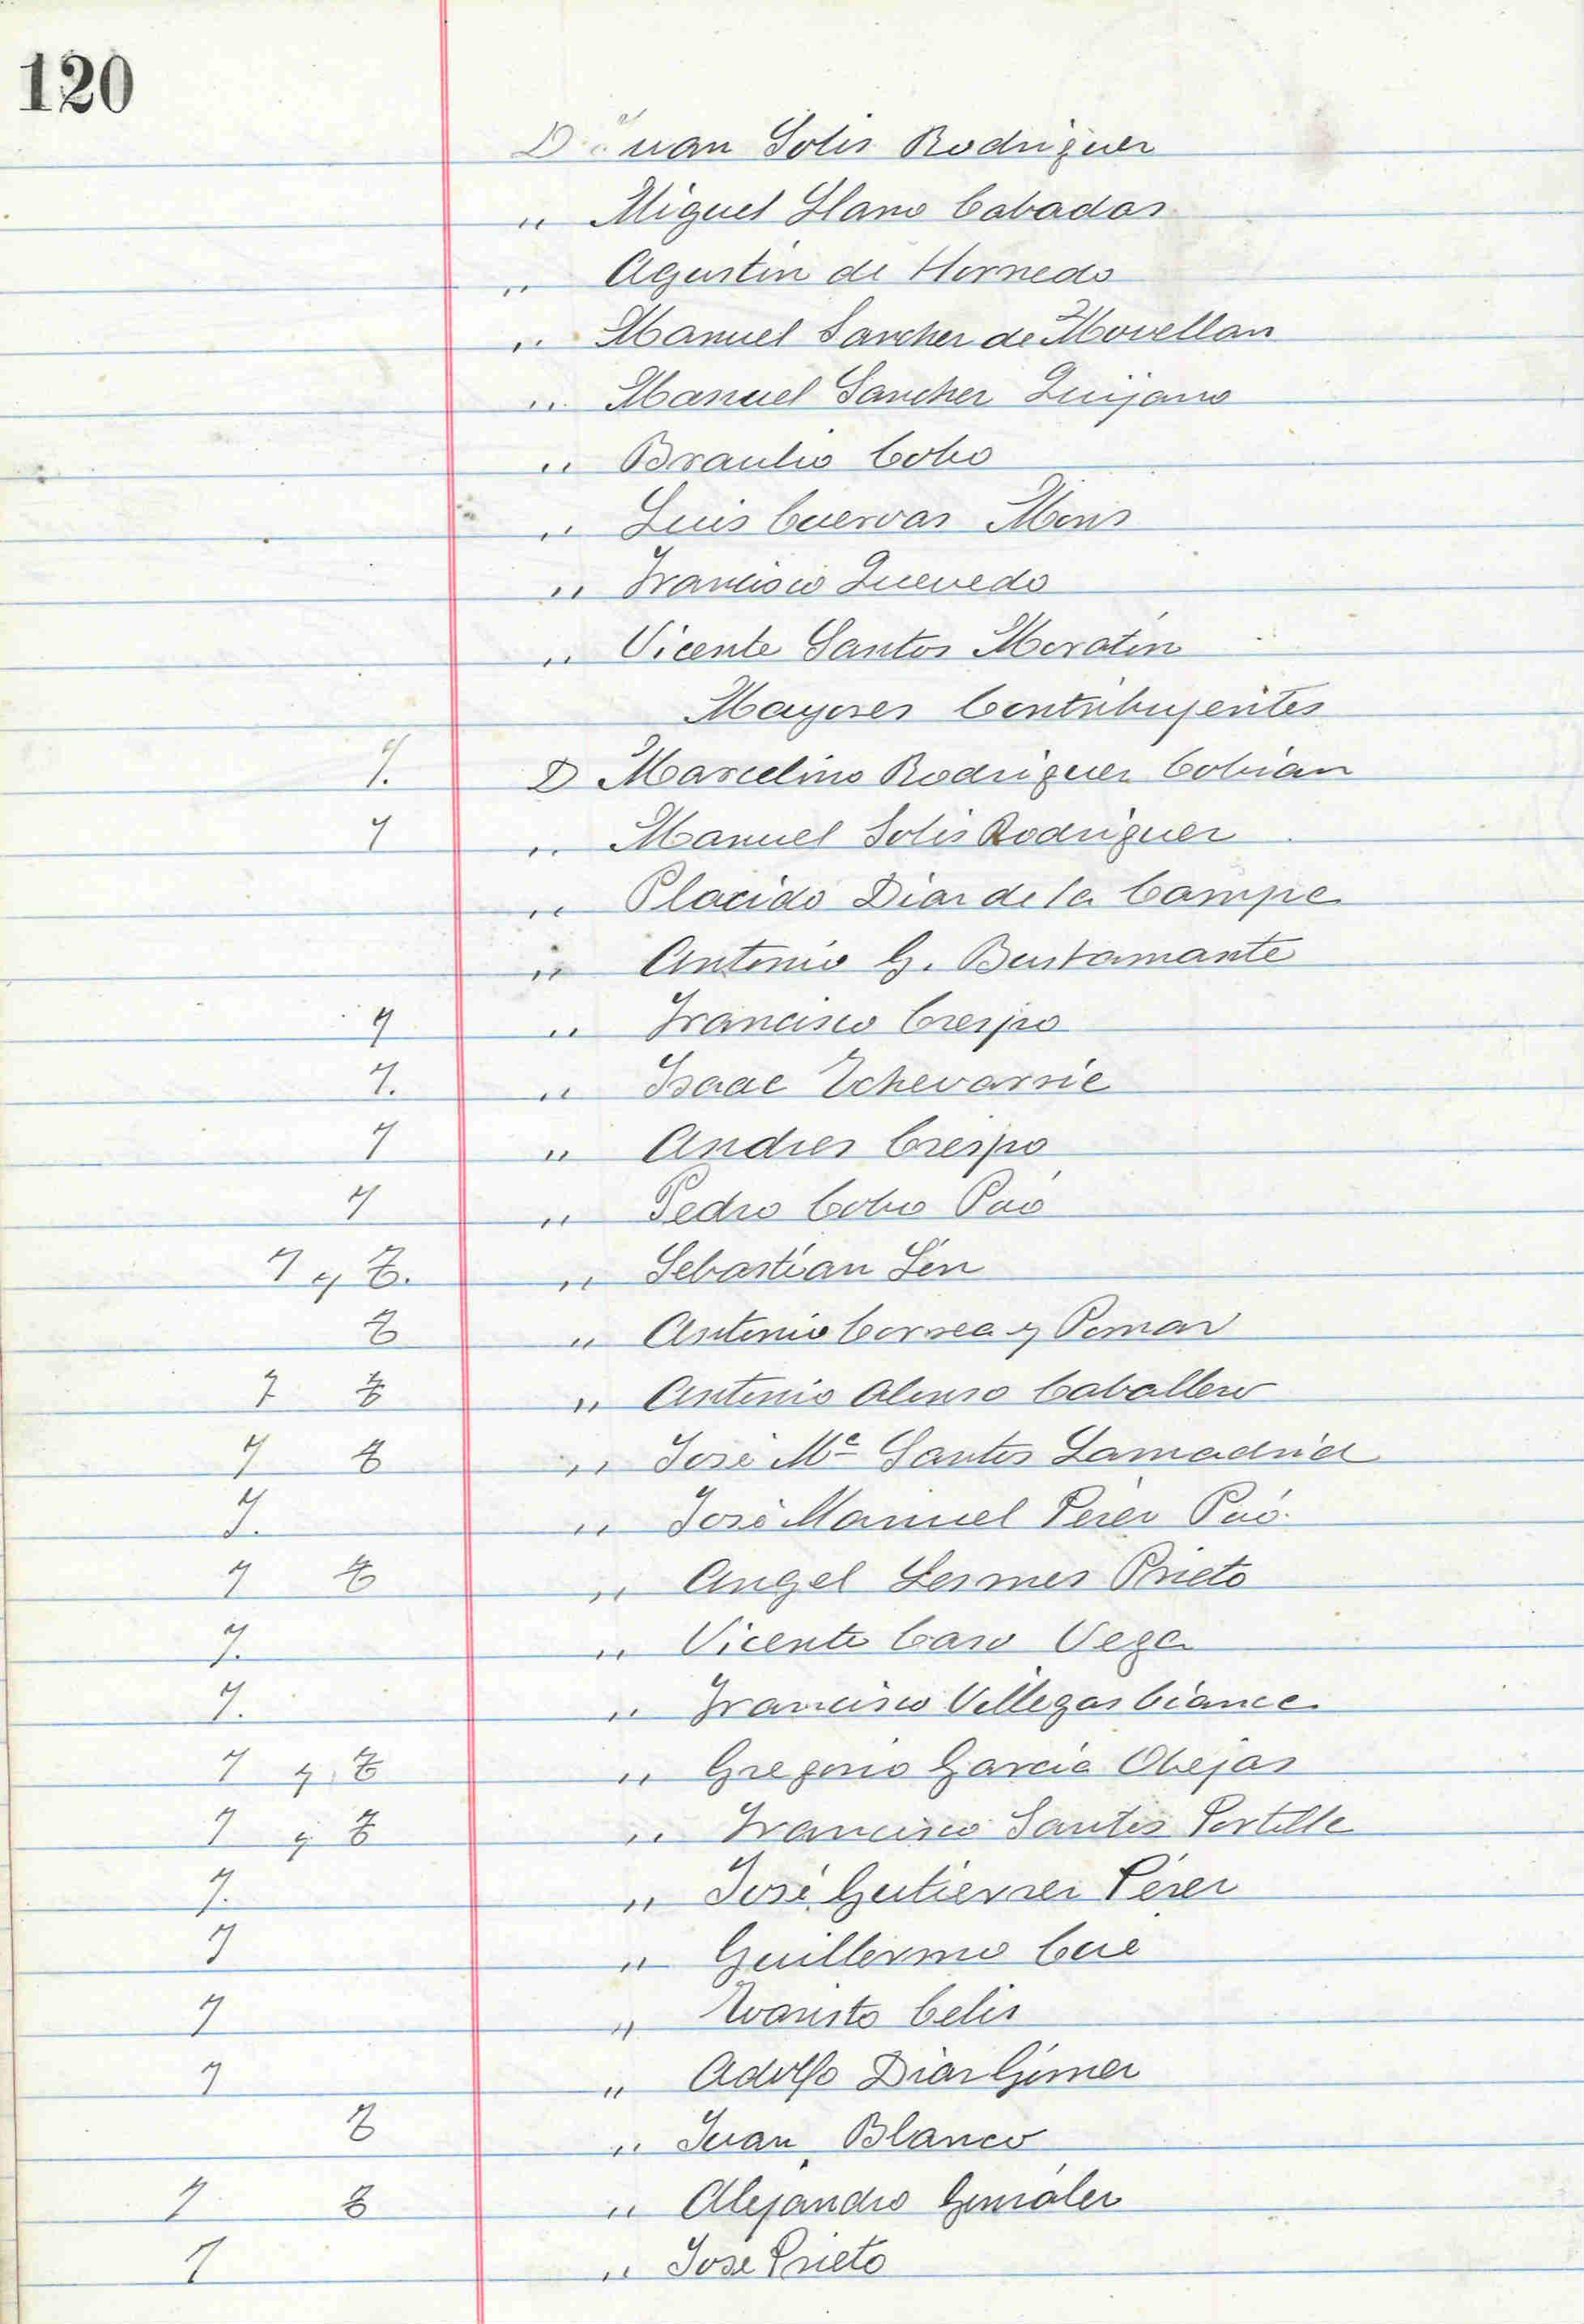 120
D Juan Solis Rodriguez
" Miguel Llano Cabadas
" Agustin de Hornedo
" Manuel Sanchez de Movellan
" Manuel Sanchez Quijano
" Braulio Cobo
" Luis Cuevas Mons
" Francisco Quevedo
" Vicente Santos Moratín
Mayores Contribuyentes
7. D Marcelino Rodriguez Cobian
7 " Manuel Solis Rodriguez
" Placido Diaz de la Campa
" Antonio G. Bustamante
7 " Francisco Crespo
7. " Isaac Echevarria
7 " Andres Crespo
7 " Pedro Cobo Puó
7 y Z. " Sebastian Lin
Z " Antonio Correa y Pomar
7 Z " Antonio Alonso Caballero
7 Z " José Mª Santos Lamadrid
7. " José Manuel Pérez Puó.
7 Z " Angel Lesmes Prieto
7. " Vicente Caso Vega
7. " Francisco Villegas Cianca
7 y Z " Gregorio Garcia Obejas
7 y Z " Francisco Santos Portilla
7. " José Gutierrez Pérez
7 " Guillermo Cué
7 " Evaristo Celis
7 " Adolfo Diaz Gimez
Z " Juan Blanco
7 Z " Alejandro Gonzáler
7 " Jose Prieto